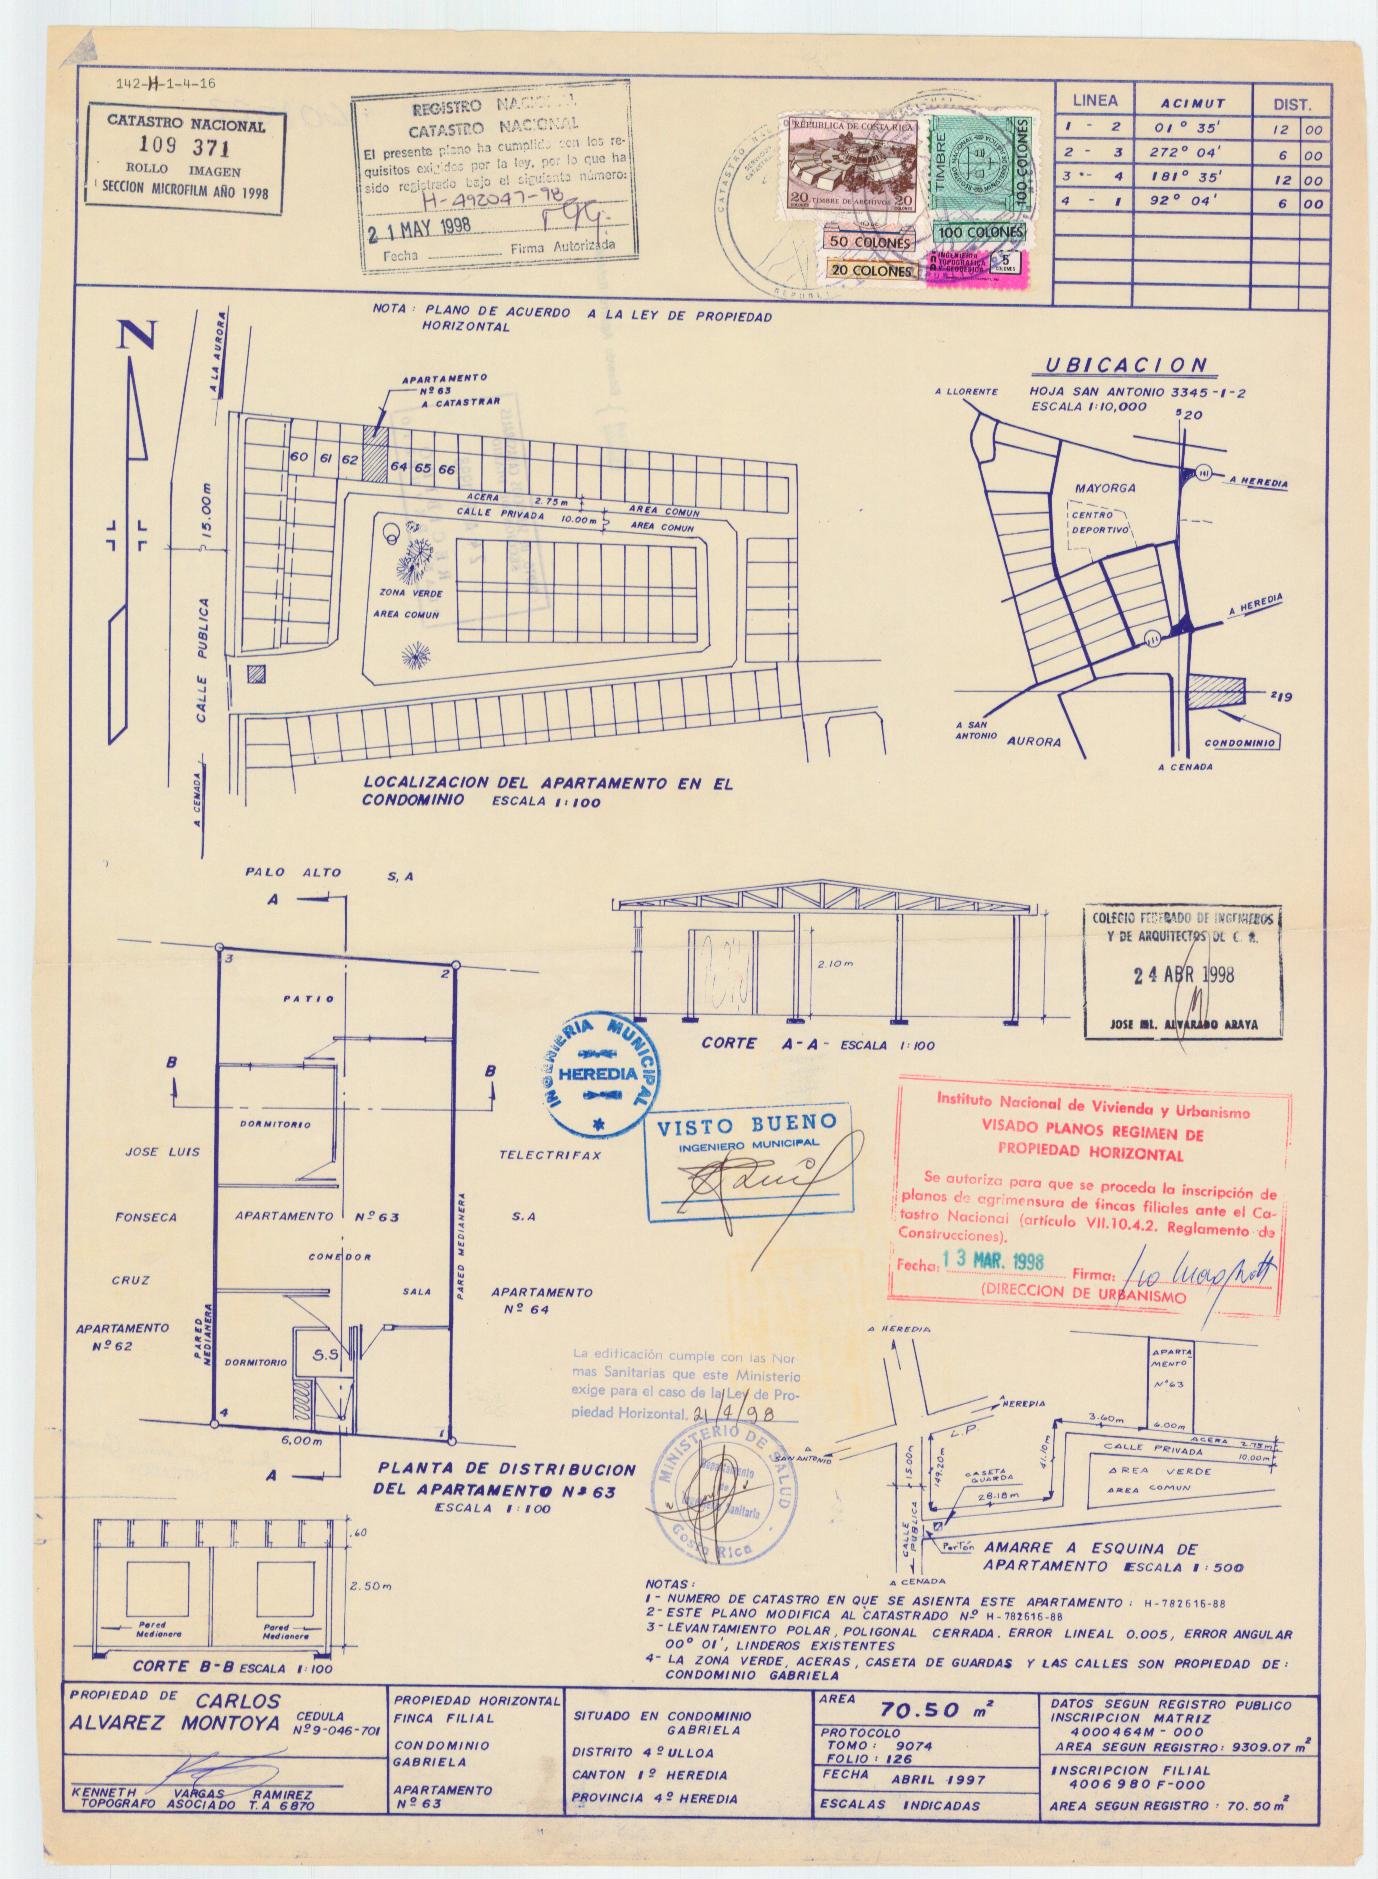 142-H-1-4-16
CATASTRO NACIONAL
109 371
ROLLO IMAGEN
SECCION MICROFILM AÑO 1998
REGISTRO NACIONAL
CATASTRO NACIONAL
El presente plano ha cumplido con los re-
quisitos exigidos por la ley, por lo que ha
sido registrado bajo el siguiente número:
H-492047-98
21 MAY 1998
Fecha Firma Autorizada
REPUBLICA DE COSTA RICA
20 COLONES TIMBRE DE ARCHIVOS 20 COLONES
TIMBRE
100 COLONES
50 COLONES
100 COLONES
20 COLONES
INGENIERIA
TOPOGRAFICA
Y GEODESICA
5
LINEA ACIMUT DIST.
1 - 2 01° 35' 12 00
2 - 3 272° 04' 6 00
3 - 4 181° 35' 12 00
4 - 1 92° 04' 6 00
NOTA : PLANO DE ACUERDO A LA LEY DE PROPIEDAD
HORIZONTAL
N
A LA AURORA
APARTAMENTO
Nº 63
A CATASTRAR
60 61 62 64 65 66
ACERA 2.75m AREA COMUN
CALLE PRIVADA 10.00m AREA COMUN
ZONA VERDE
AREA COMUN
15.00m
CALLE PUBLICA
A CENADA
LOCALIZACION DEL APARTAMENTO EN EL
CONDOMINIO ESCALA 1:100
UBICACION
HOJA SAN ANTONIO 3345-1-2
ESCALA 1:10,000
A LLORENTE
520
141
A HEREDIA
MAYORGA
CENTRO
DEPORTIVO
A HEREDIA
111
219
A SAN
ANTONIO
AURORA
CONDOMINIO
A CENADA
PALO ALTO S,A
A
3
2
PATIO
B
B
DORMITORIO
JOSE LUIS
FONSECA
CRUZ
APARTAMENTO
Nº 62
APARTAMENTO Nº 63
COMEDOR
SALA
PARED MEDIANERA
PARED
MEDIANERA
DORMITORIO
S.S
4
1
6.00m
A
TELECTRIFAX
S.A
APARTAMENTO
Nº 64
PLANTA DE DISTRIBUCION
DEL APARTAMENTO Nº 63
ESCALA 1:100
2.10m
CORTE A-A- ESCALA 1:100
COLEGIO FEDERADO DE INGENIEROS
Y DE ARQUITECTOS DE C. R.
24 ABR 1998
JOSE ML. ALVARADO ARAYA
INGENIERIA MUNICIPAL
HEREDIA
VISTO BUENO
INGENIERO MUNICIPAL
Instituto Nacional de Vivienda y Urbanismo
VISADO PLANOS REGIMEN DE
PROPIEDAD HORIZONTAL
Se autoriza para que se proceda la inscripción de
planos de agrimensura de fincas filiales ante el Ca-
tastro Nacional (artículo VII.10.4.2. Reglamento de
Construcciones).
Fecha: 13 MAR. 1998 Firma:
(DIRECCION DE URBANISMO
La edificación cumple con las Nor-
mas Sanitarias que este Ministerio
exige para el caso de la Ley de Pro-
piedad Horizontal. 21/4/98
MINISTERIO DE SALUD
Departamento
de
Ingeniería Sanitaria
Costa Rica
A HEREDIA
A
HEREDIA
L.P.
A
SAN ANTONIO
15.00m
149.20m
CASETA
GUARDA
28.18m
41.10m
3.60m
6.00m
APARTA
MENTO
Nº 63
ACERA 2.75m
CALLE PRIVADA 10.00m
AREA VERDE
AREA COMUN
CALLE
PUBLICA
Portón
A CENADA
AMARRE A ESQUINA DE
APARTAMENTO ESCALA 1:500
.60
2.50m
Pared
Medianera
Pared
Medianera
CORTE B-B ESCALA 1:100
NOTAS:
1- NUMERO DE CATASTRO EN QUE SE ASIENTA ESTE APARTAMENTO : H-782616-88
2- ESTE PLANO MODIFICA AL CATASTRADO Nº H-782616-88
3- LEVANTAMIENTO POLAR, POLIGONAL CERRADA. ERROR LINEAL 0.005, ERROR ANGULAR
00° 01', LINDEROS EXISTENTES
4- LA ZONA VERDE, ACERAS, CASETA DE GUARDAS Y LAS CALLES SON PROPIEDAD DE:
CONDOMINIO GABRIELA
PROPIEDAD DE CARLOS
ALVAREZ MONTOYA CEDULA
Nº 9-046-701
KENNETH VARGAS RAMIREZ
TOPOGRAFO ASOCIADO T.A 6870
PROPIEDAD HORIZONTAL
FINCA FILIAL
CONDOMINIO
GABRIELA
APARTAMENTO
Nº 63
SITUADO EN CONDOMINIO
GABRIELA
DISTRITO 4º ULLOA
CANTON 1º HEREDIA
PROVINCIA 4º HEREDIA
AREA 70.50 m²
PROTOCOLO
TOMO : 9074
FOLIO : 126
FECHA ABRIL 1997
ESCALAS INDICADAS
DATOS SEGUN REGISTRO PUBLICO
INSCRIPCION MATRIZ
4000464M - 000
AREA SEGUN REGISTRO: 9309.07 m²
INSCRIPCION FILIAL
4006980F-000
AREA SEGUN REGISTRO : 70.50 m²